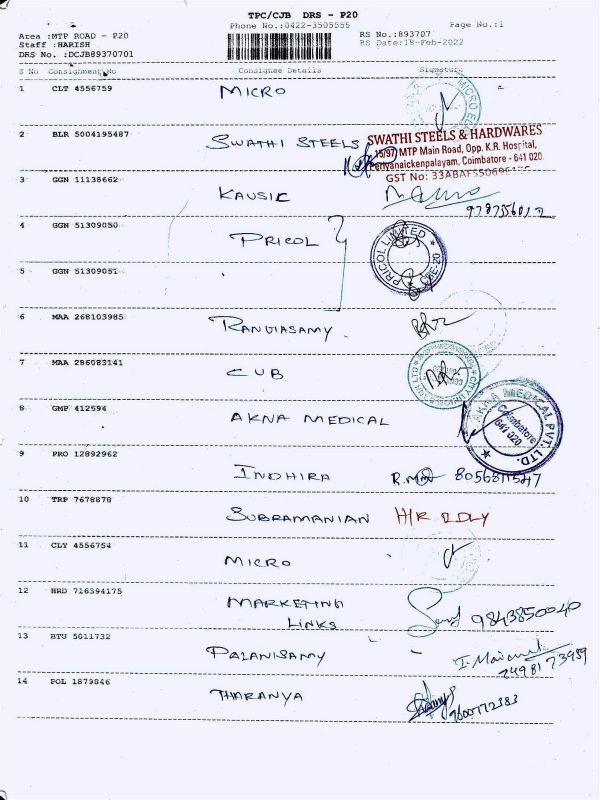 TPC/CJB DRS - P20
Phone No.:0422-3505555 Page No.:1
Area :MTP ROAD - P20 RS No.:893707
Staff :HARISH RS Date:18-Feb-2022
DRS No. :DCJB89370701
S No Consignment No Consignee Details Signature
1 CLT 4556759 MICRO
2 BLR 5004195487 SWATHI STEELS
SWATHI STEELS & HARDWARES
15/97 MTP Main Road, Opp. K.R. Hospital,
Periyanaickenpalayam, Coimbatore - 641 020.
GST No: 33ABAFS5069E1ZG
3 GGN 11138662 KAUSIC
4 GGN 51309050 PRICOL
PRICOL LIMITED
5 GGN 51309051
6 MAA 268103985 RANGIASAMY
7 MAA 286083141 CUB
8 GMP 412594 AKNA MEDICAL
AKNA MEDICAL PVT. LTD.
Coimbatore
641 020
9 PRO 12892962 INDHIRA 8056811547
10 TRP 7678878 SUBRAMANIAN H/R RDLY
11 CLT 4556754 MICRO
12 HRD 716394175 MARKETING
LINKS 9843850040
13 BTU 5011732 PALANISAMY
14 POL 1879846 THARANYA 9600772383